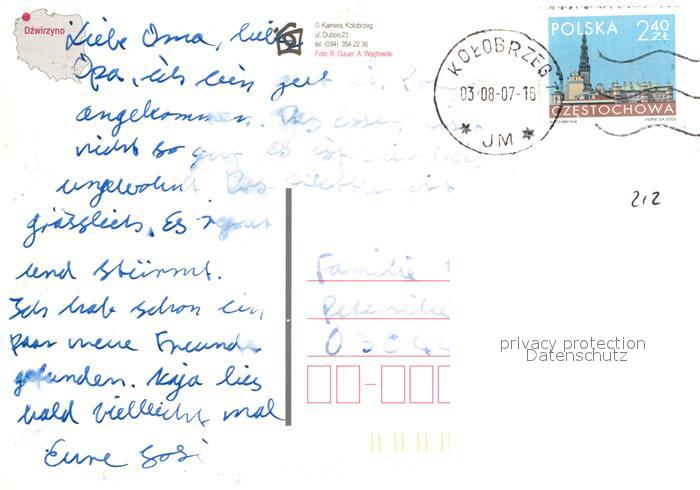 Dźwirzyno
© Kamera, Kołobrzeg
ul. Dubois23
tel. (094) 354 22 36
Foto: R. Gauer, A. Węgłowski
POLSKA 2 40 ZŁ
CZĘSTOCHOWA
PWPW SA 2006
KOŁOBRZEG 1
03-08-07-16
JM
Liebe Oma, lieber
Opa, ich bin gut in
angekommen. Das essen ist
nicht so gut es ist
ungewohnt Das Wetter ist
grässlich. Es regnet
und stürmt.
Ich hab schon ein
paar neue Freunde
gefunden. Kaja lies
bald vielleicht mal
Eure
212
Familie
03044
privacy protection
Datenschutz